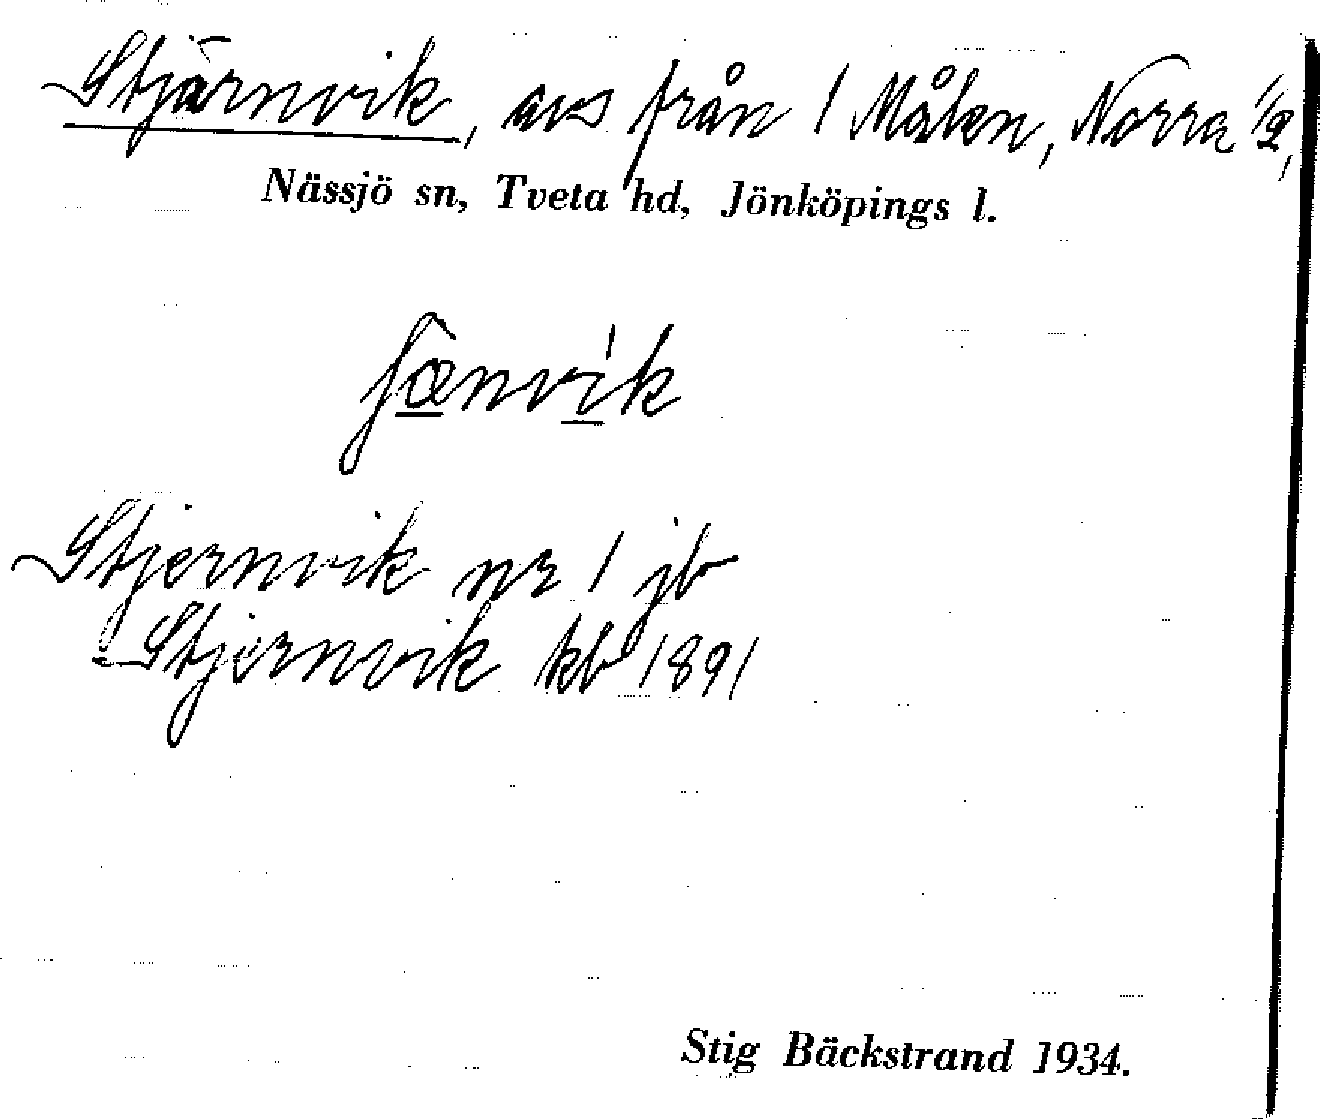 Stjärnvik, avs från 1 Målen, Norra 1/2,
Nässjö sn, Tveta hd, Jönköpings l.
ʃænvík
Stjernvik nr 1 jb
Stjernvik kb 1891
Stig Bäckstrand 1934.